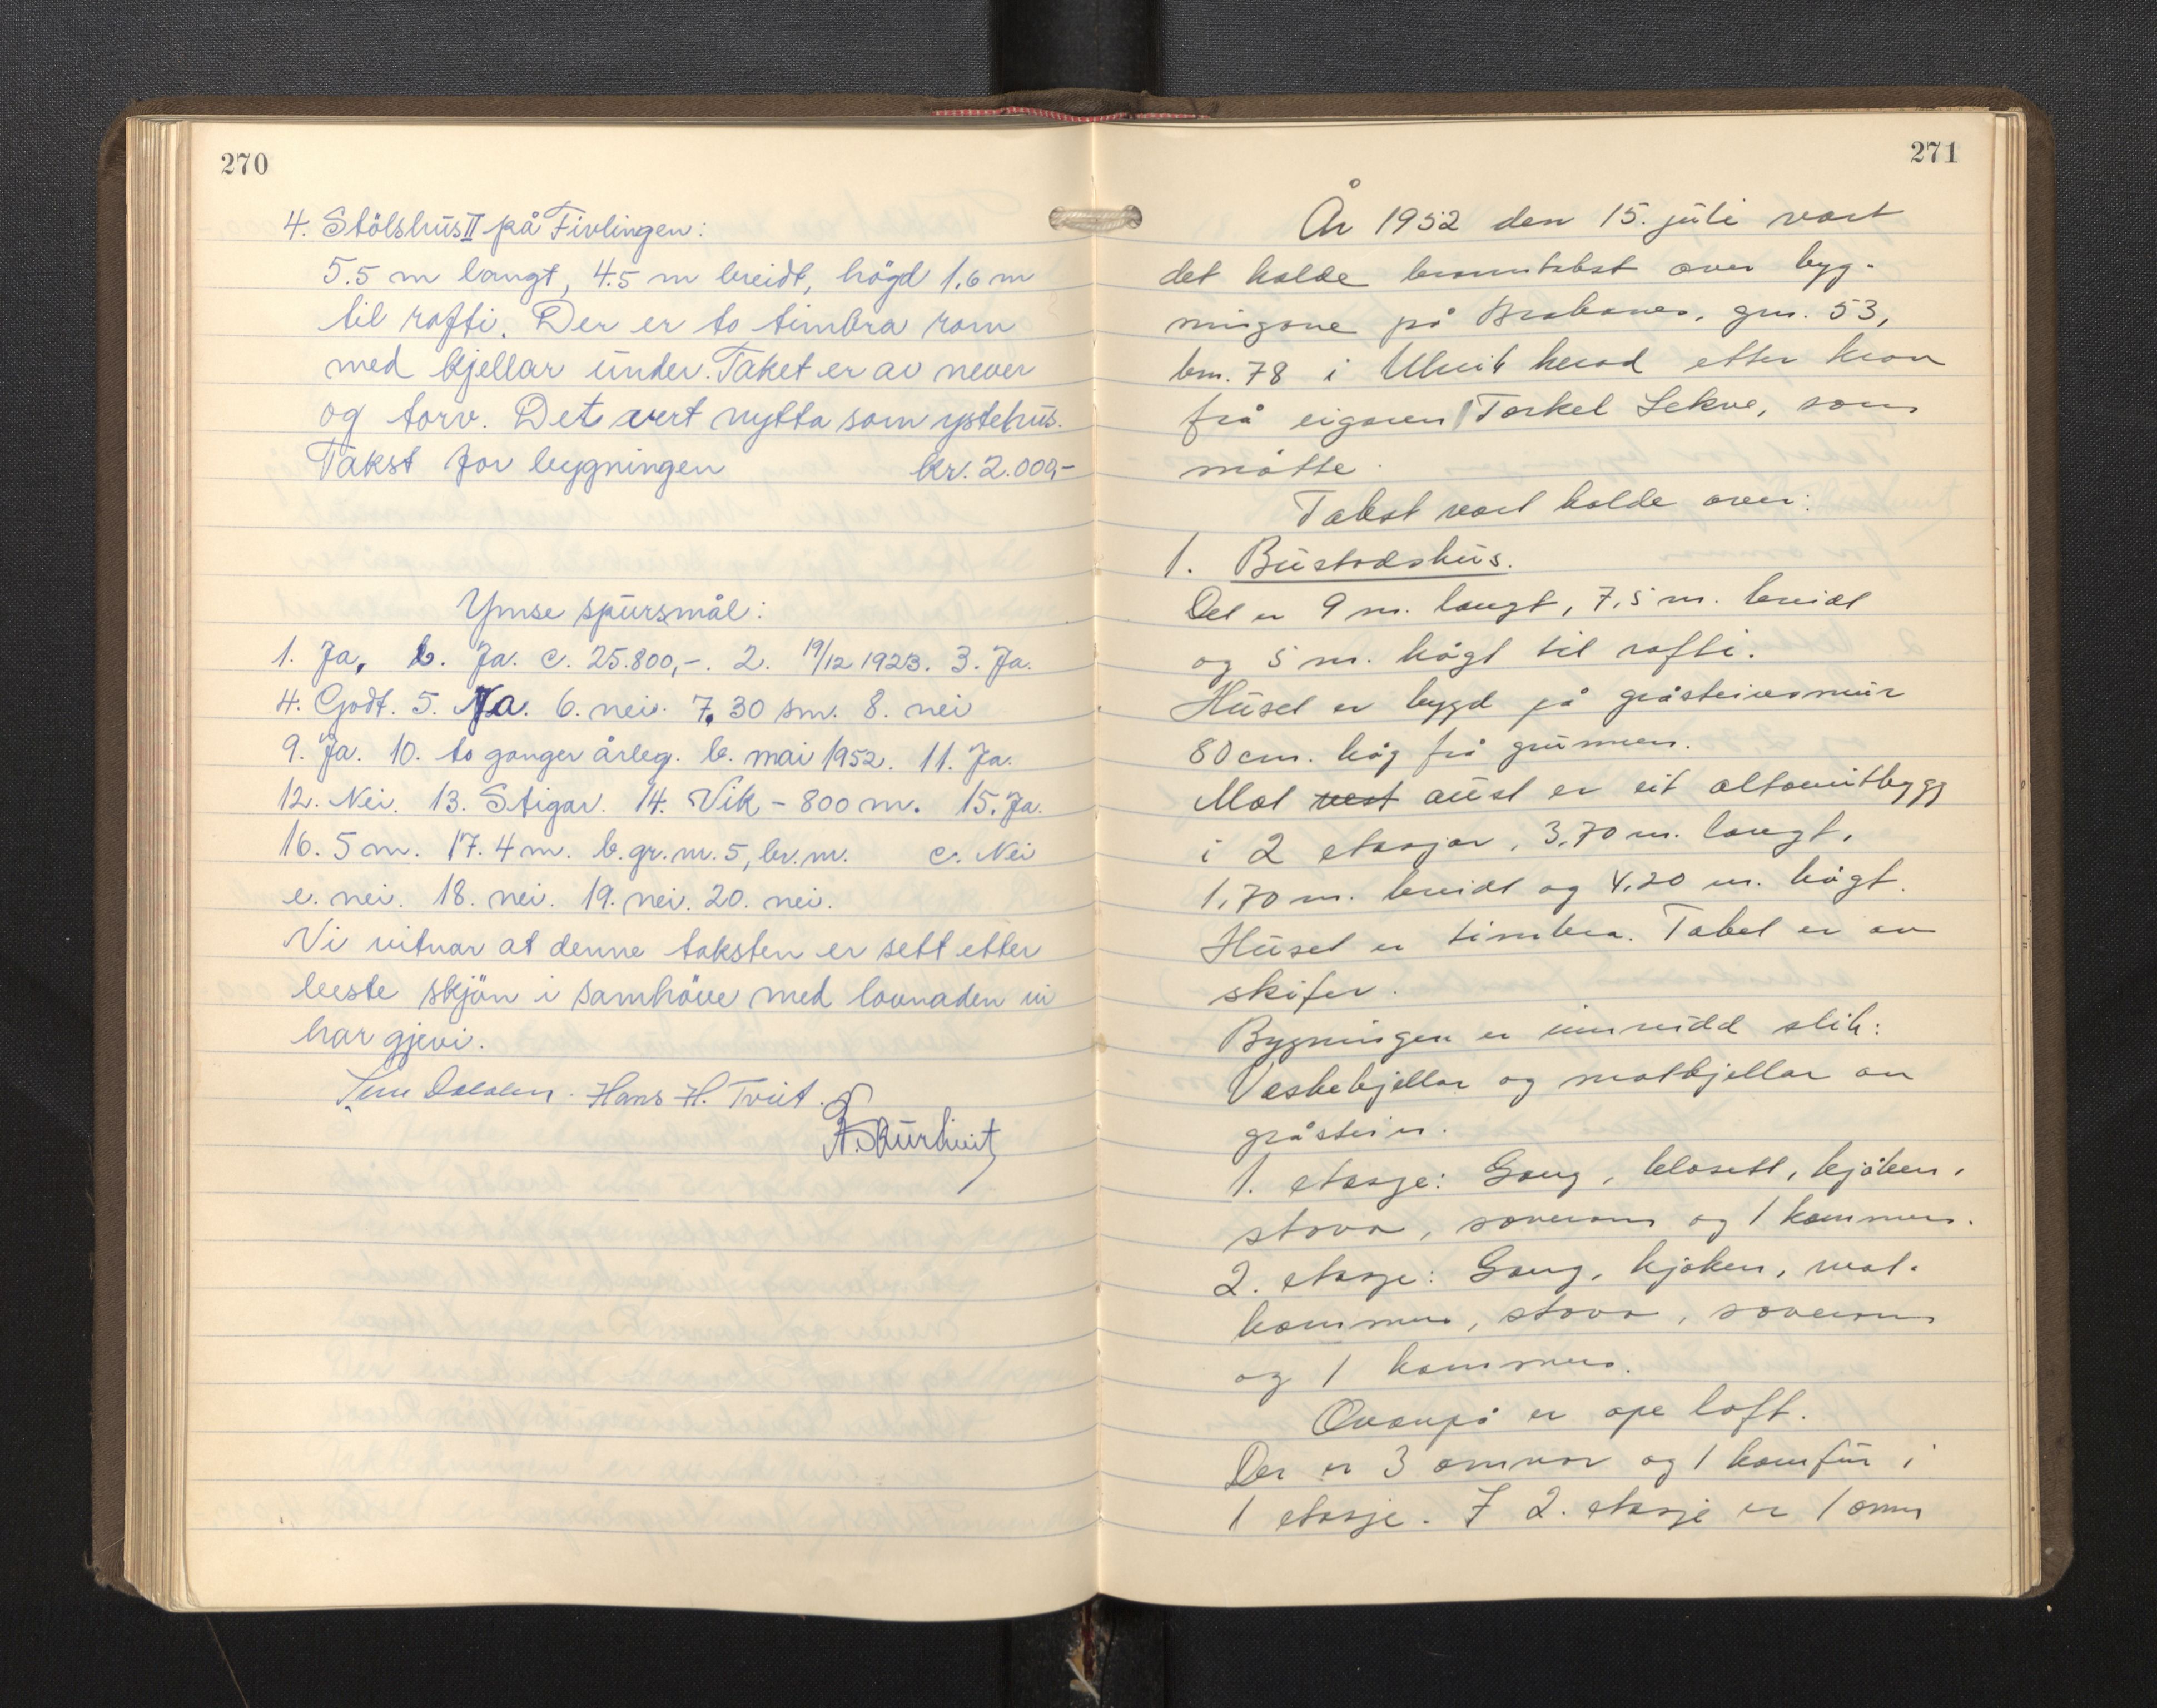 270
4. Stölshus II på Fivlingen:
5.5 m langt, 4.5 m breidt, högd 1.6 m
til rafti. Der er to timbra rom
med kjellar under. Taket er av never
og torv. Det vert nytta som ystehus.
Takst for bygningen kr. 2.000,-
Ymse spursmål:
1. Ja, b. Ja. c. 25.800,-. 2. 19/12 1923. 3. Ja.
4. Godt. 5. Ja. 6. nei. 7. 30 sm. 8. nei
9. Ja. 10. to gonger årleg. b. mai 1952. 11. Ja.
12. Nei. 13. Stigar. 14. Vik - 800 m. 15. Ja.
16. 5 m. 17. 4 m. b. gr. m. 5, br. m. c. Nei
e. nei. 18. nei. 19. nei. 20. nei.
Vi vitnar at denne taksten er sett etter
beste skjön i samhöve med lovnaden vi
har gjevi.
Hans H. Tveit.
271
År 1952 den 15. juli vart
det halde branntakst over byg-
ningane på gnr. 53,
bnr. 78 i Ulvik herad etter krav
frå eigaren Torkel Lekve, som
møtte.
Takst vart halde over:
1. Bustadshus.
Det er 9 m. langt, 7,5 m. breidt
og 5 m. högt til rafti.
Huset er bygd på gråsteinsmur
80 cm. høg frå grunnen.
Mot vest aust er eit altanutbygg
i 2 etasjar, 3,70 m. langt,
1,70 m. breidt og 4,20 m. høgt.
Huset er timbra. Taket er av
skifer.
Bygningen er innreidd slik:
Vaskekjellar og matkjellar av
gråstein.
1. etasje: Gang, klosett, kjøken,
stova, soverom og 1 kammers.
2. etasje: Gang, kjøken, mat-
kammers, stova, soverom
og 1 kammers.
Ovanpå er ope loft.
Der er 3 omnar og 1 komfur i
1 etasje. I 2. etasje er 1 omn